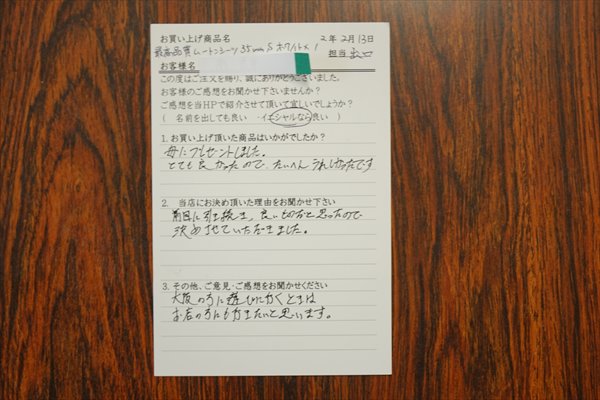 お買い上げ商品名 2年2月13日
最高品質ムートンシーツ35mm S ホワイト×1 担当 出口
お客様名
この度はご注文を賜り、誠にありがとうございました。
お客様のご感想をお聞かせ下さいませんか?
ご感想を当HPで紹介させて頂いて宜しいでしょうか?
( 名前を出しても良い ・イニシャルなら良い )
1. お買い上げ頂いた商品はいかがでしたか?
母にプレゼントしました。
とても良かったので、たいへんうれしかったです
2. 当店にお決め頂いた理由をお聞かせ下さい
前回に引き続き、良いものだと思ったので
決めさせていただきました。
3. その他、ご意見・ご感想をお聞かせください
大阪の方に遊びに行くときは
お店の方にも行きたいと思います。